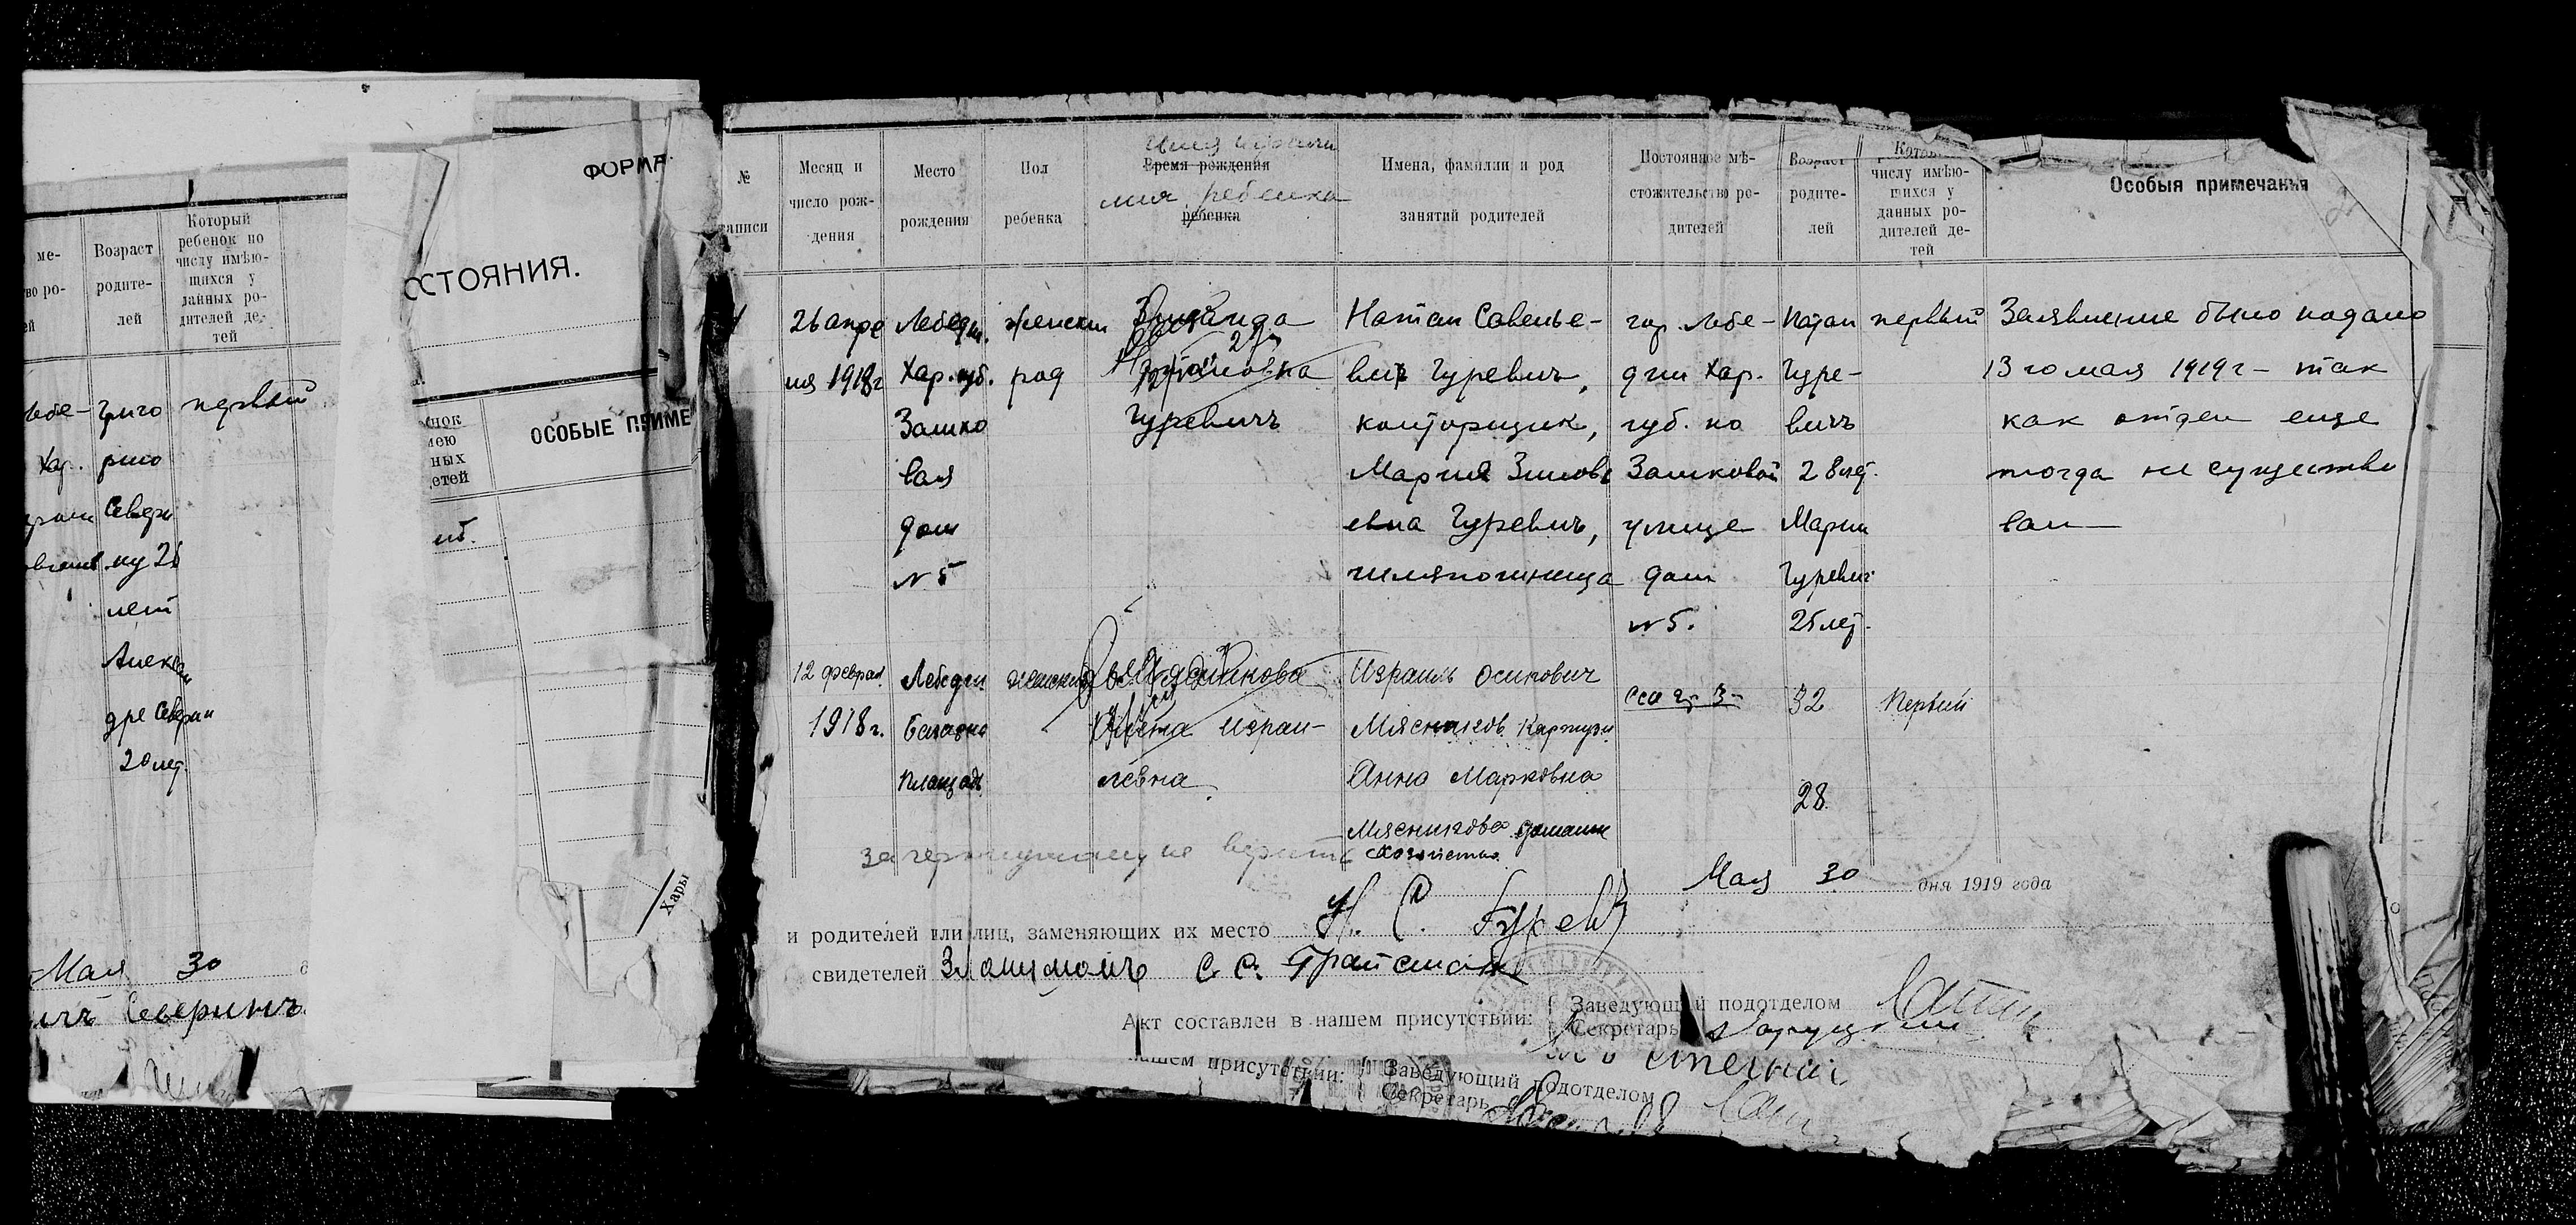 ФОРМА
СТОЯНИЯ.
ОСОБЫЕ ПРИМЕ
ме-
во ро-
ей
Возраст
родите-
лей
Который
ребенок по
числу имѣю-
щихся у
данных ро-
дителей де-
тей
нок
ею
ных
етей
Лебе-
Хар.
Григо
рию
Севери
ну 26
лет
Алексан
дре Северин
20 лет.
первый
Хары
Мая 30
ичъ Северинъ
№
записи
Месяц и
число рож-
дения
Место
рождения
Пол
ребенка
Время рождения
имя ребенка
ребенка
Имена, фамилии и род
занятий родителей
Постоянное мѣ-
стожительство ро-
дителей
Возраст
родите-
лей
числу имѣю-
щихся у
данных ро-
дителей де-
тей
Особыя примечания
26 апре
ля 1918 г
Лебедин.
Хар. губ.
Замко
вая
дом
№ 5
женски
род
Зинаида
Натановна
Гуревичъ
Натан Савелье-
вич Гуревич,
конторщик,
Мария Зиновь
евна Гуревич,
шляпошница
гор. Лебе-
дин Хар.
губ. по
Замковой
улице
дом
№ 5.
Натан
Гуре-
вичъ
28 лет.
Мария
Гуревич
25 лет.
первый
Заявление было подано
13 го мая 1919 г - так
как отдел еще
тогда не существо
вал
12 феврал.
1918 г.
Лебедин
Базарно
площадь
женский
Мясникова
Израи-
левна.
Израиль Осипович
Мясников Картузн
Анна Марковна
Мясникова домашн
хозяйство.
32
28.
Первый
зачеркнутому не верить
Мая 30 дня 1919 года
и родителей или лиц, заменяющих их место Н. С. Гурев
свидетелей С. С.
Акт составлен в нашем присутствии:
Заведующий подотделом
Секретарь
нашем присутствии:
Заведующий подотделом
Секретарь